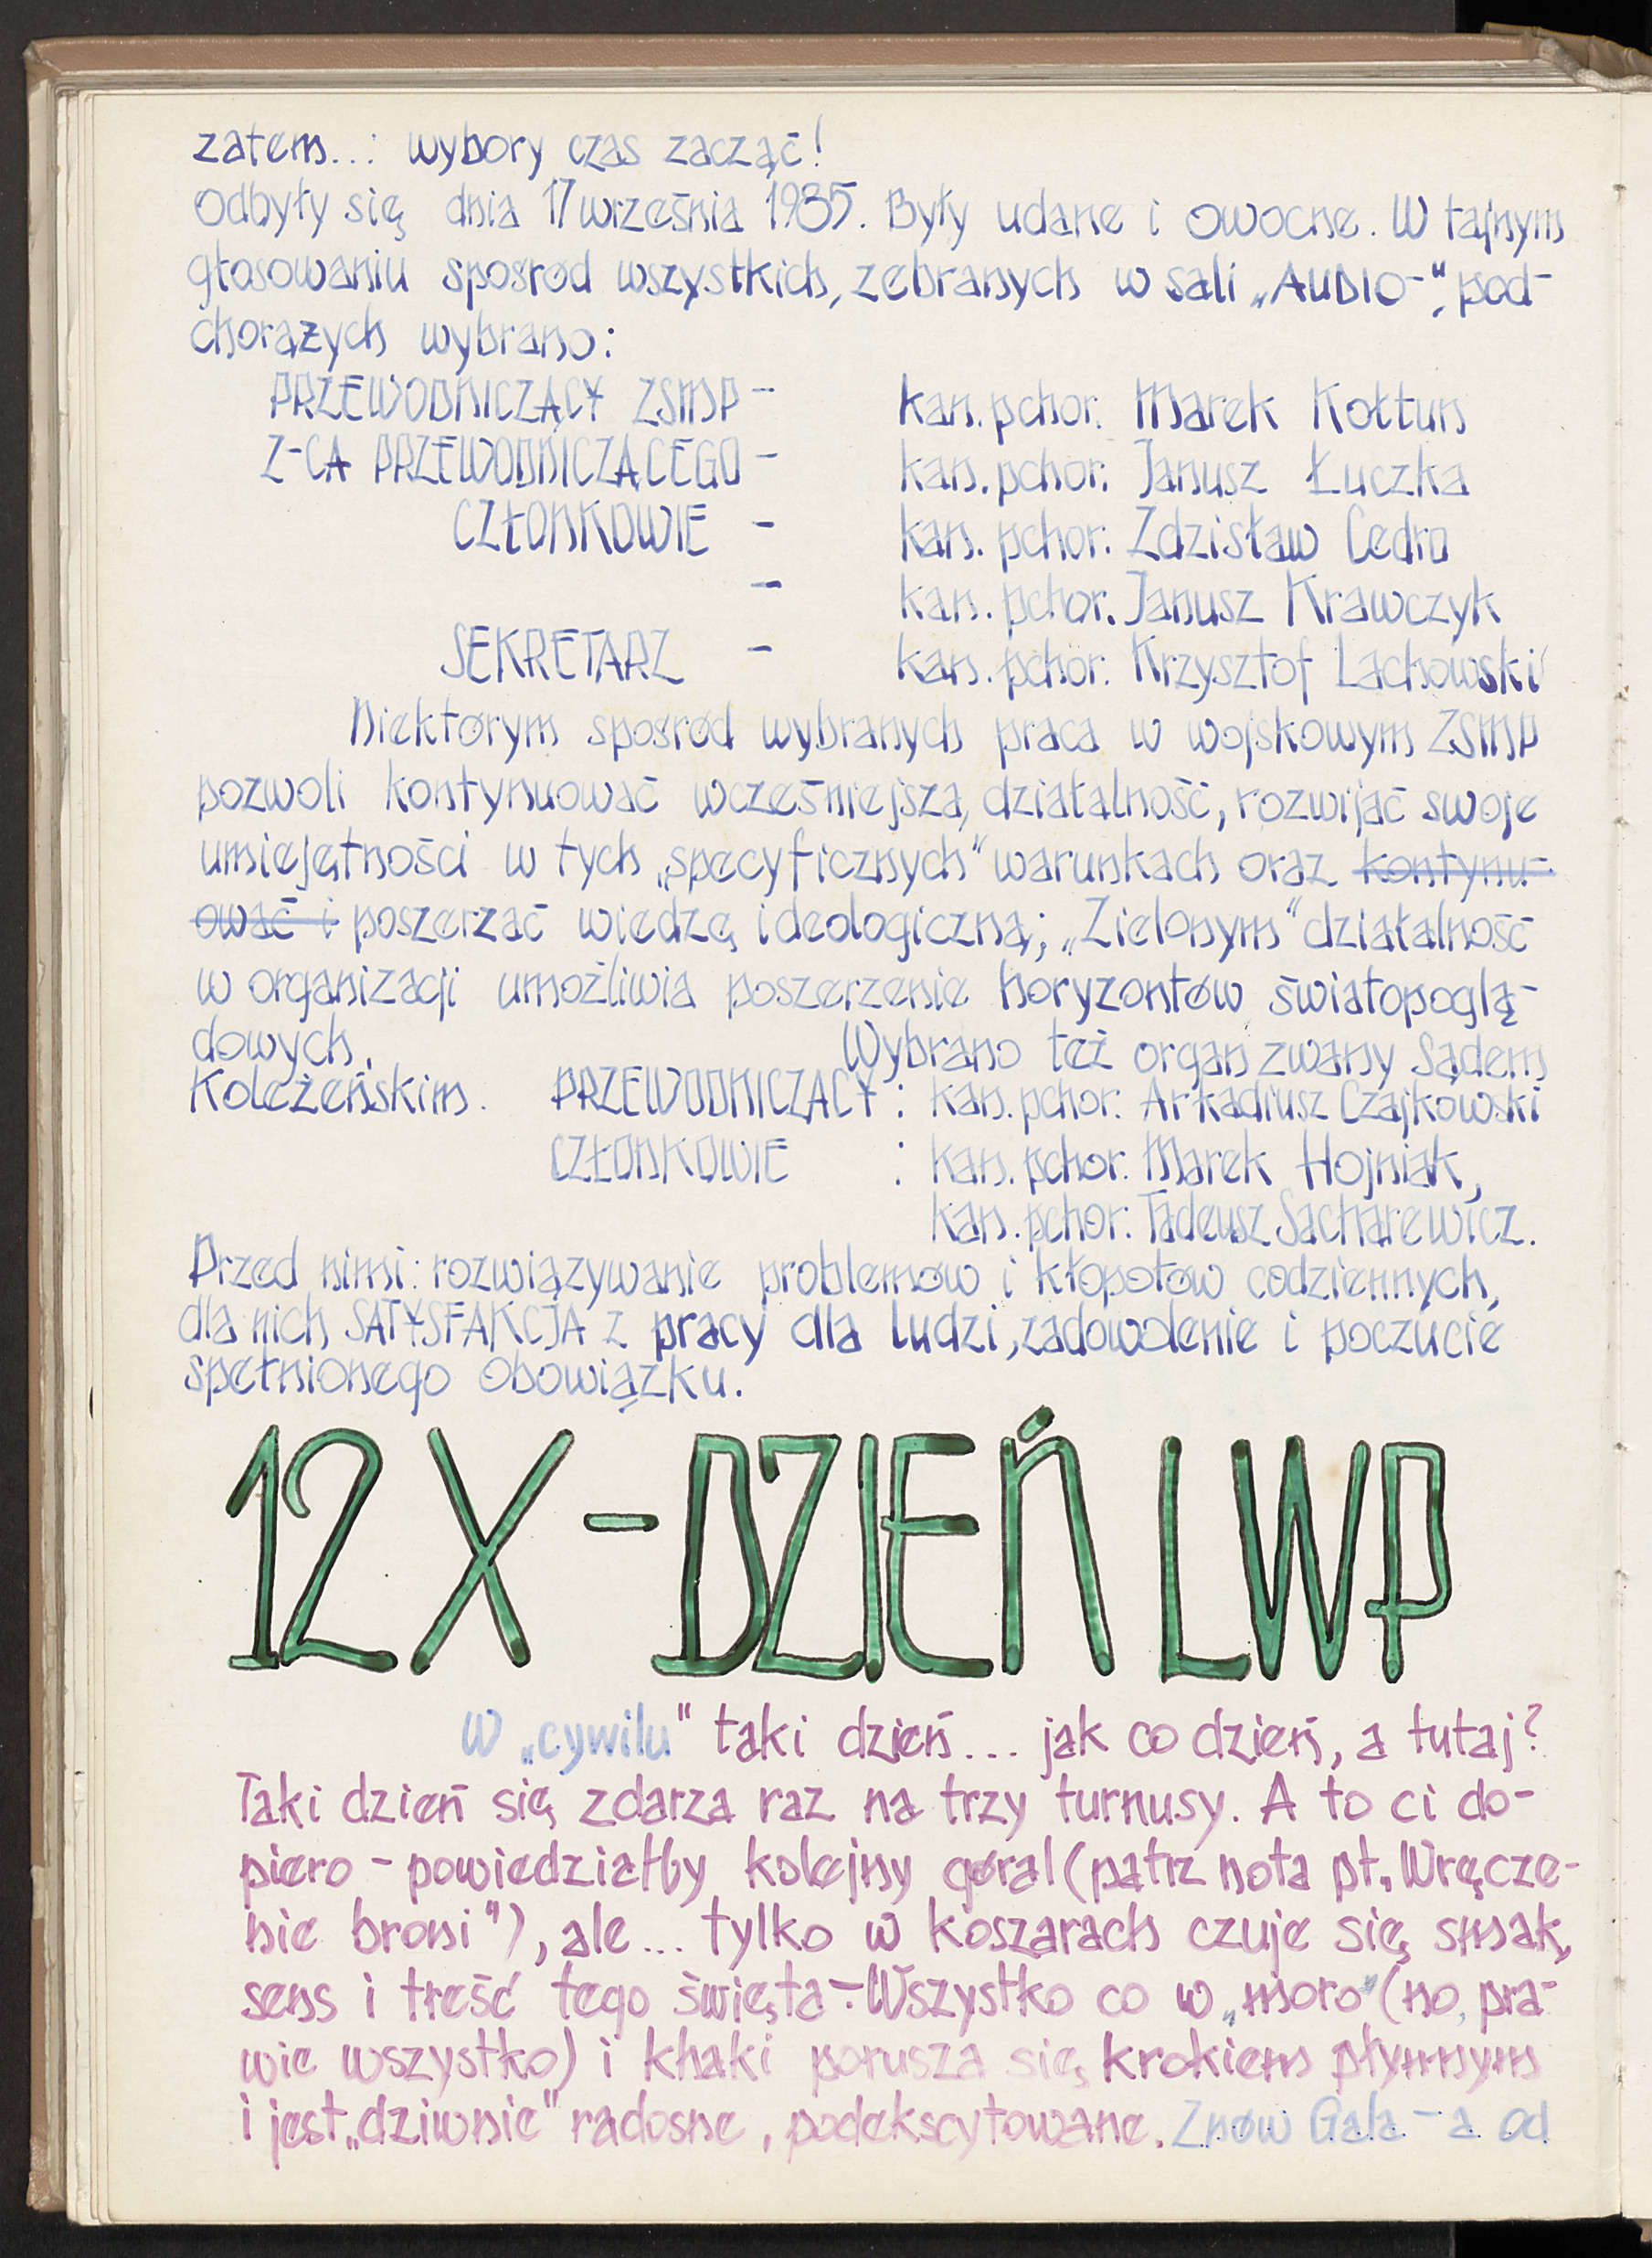 zatem...: wybory czas zacząć!
Odbyły się dnia 17 września 1985. Były udane i owocne. W tajnym
głosowaniu spośród wszystkich, zebranych w sali „AUDIO-", pod-
chorążych wybrano:
PRZEWODNICZĄCY ZSMP - kan. pchor. Marek Kołtun
Z-CA PRZEWODNICZĄCEGO - kan. pchor. Janusz Łuczka
CZŁONKOWIE - kan. pchor. Zdzisław Cedro
- kan. pchor. Janusz Krawczyk
SEKRETARZ - kan. pchor. Krzysztof Lachowski
Niektórym spośród wybranych praca w wojskowym ZSMP
pozwoli kontynuować wcześniejszą działalność, rozwijać swoje
umiejętności w tych „specyficznych" warunkach oraz kontynu-
ować i poszerzać wiedzę ideologiczną; „Zielonym" działalność
w organizacji umożliwia poszerzenie horyzontów światopoglą-
dowych. Wybrano też organ zwany Sądem
Koleżeńskim. PRZEWODNICZĄCY : kan. pchor. Arkadiusz Czajkowski
CZŁONKOWIE : kan. pchor. Marek Hojniak,
kan. pchor. Tadeusz Sacharewicz.
Przed nimi: rozwiązywanie problemów i kłopotów codziennych,
dla nich SATYSFAKCJA z pracy dla ludzi, zadowolenie i poczucie
spełnionego obowiązku.
12 X - DZIEŃ LWP
W „cywilu" taki dzień... jak co dzień, a tutaj?
Taki dzień się zdarza raz na trzy turnusy. A to ci do-
piero - powiedziałby kolejny góral (patrz nota pt. „Wręcze-
nie broni"), ale... tylko w koszarach czuje się smak,
sens i treść tego święta - Wszystko co w „moro" (no, pra-
wie wszystko) i khaki porusza się krokiem płynnym
i jest „dziwnie" radosne, podekscytowane. Znów Gala - a od